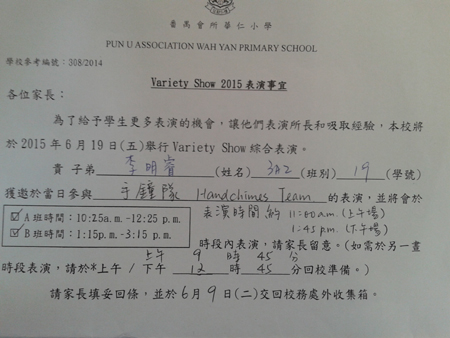 番禺會所華仁小學
PUN U ASSOCIATION WAH YAN PRIMARY SCHOOL
學校參考編號：308/2014
Variety Show 2015 表演事宜
各位家長：
為了給予學生更多表演的機會，讓他們表演所長和吸取經驗，本校將
於2015年6月19日(五)舉行Variety Show綜合表演。
貴子弟 李明睿 (姓名) 3A2 (班別) 19 (學號)
獲邀於當日參與 手鐘隊 Handchimes Team 的表演，並將會於
☑ A班時間：10:25a.m.-12:25 p.m.
☑ B班時間：1:15p.m.-3:15 p.m.
表演時間約 11:00am (上午場)
1:45 p.m. (下午場)
時段內表演，請家長留意。(如需於另一晝
上午 9 時 45 分
時段表演，請於*上午 / 下午 12 時 45 分回校準備。)
請家長填妥回條，並於6月9日(二)交回校務處外收集箱。